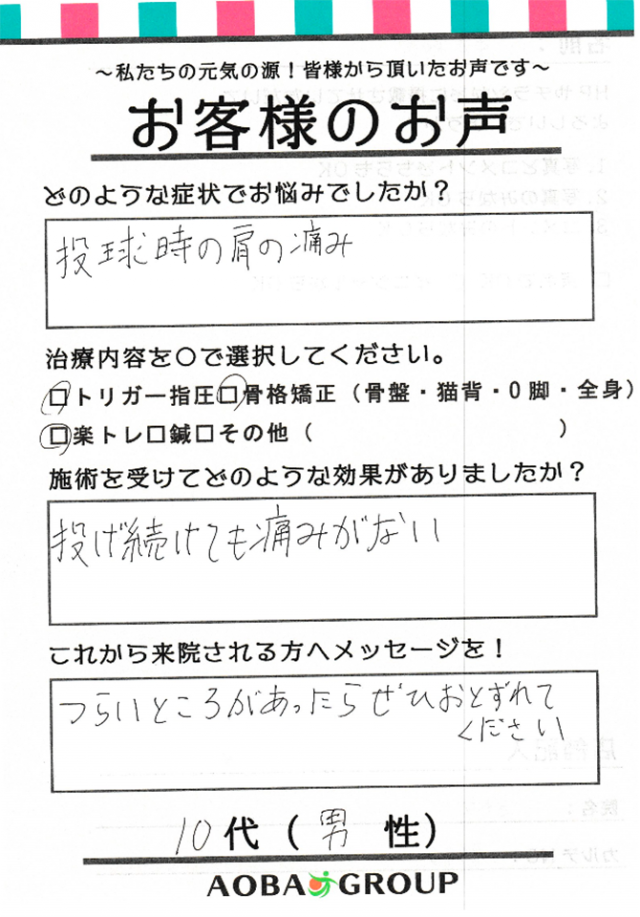 ～私たちの元気の源！皆様から頂いたお声です～
お客様のお声
どのような症状でお悩みでしたか？
投球時の肩の痛み
治療内容を〇で選択してください。
□トリガー指圧□骨格矯正（骨盤・猫背・O脚・全身）
□楽トレ□鍼□その他（　　　　　　　　　　）
施術を受けてどのような効果がありましたか？
投げ続けても痛みがない
これから来院される方へメッセージを！
つらいところがあったらぜひおとずれて
ください
10代（男 性）
AOBA GROUP